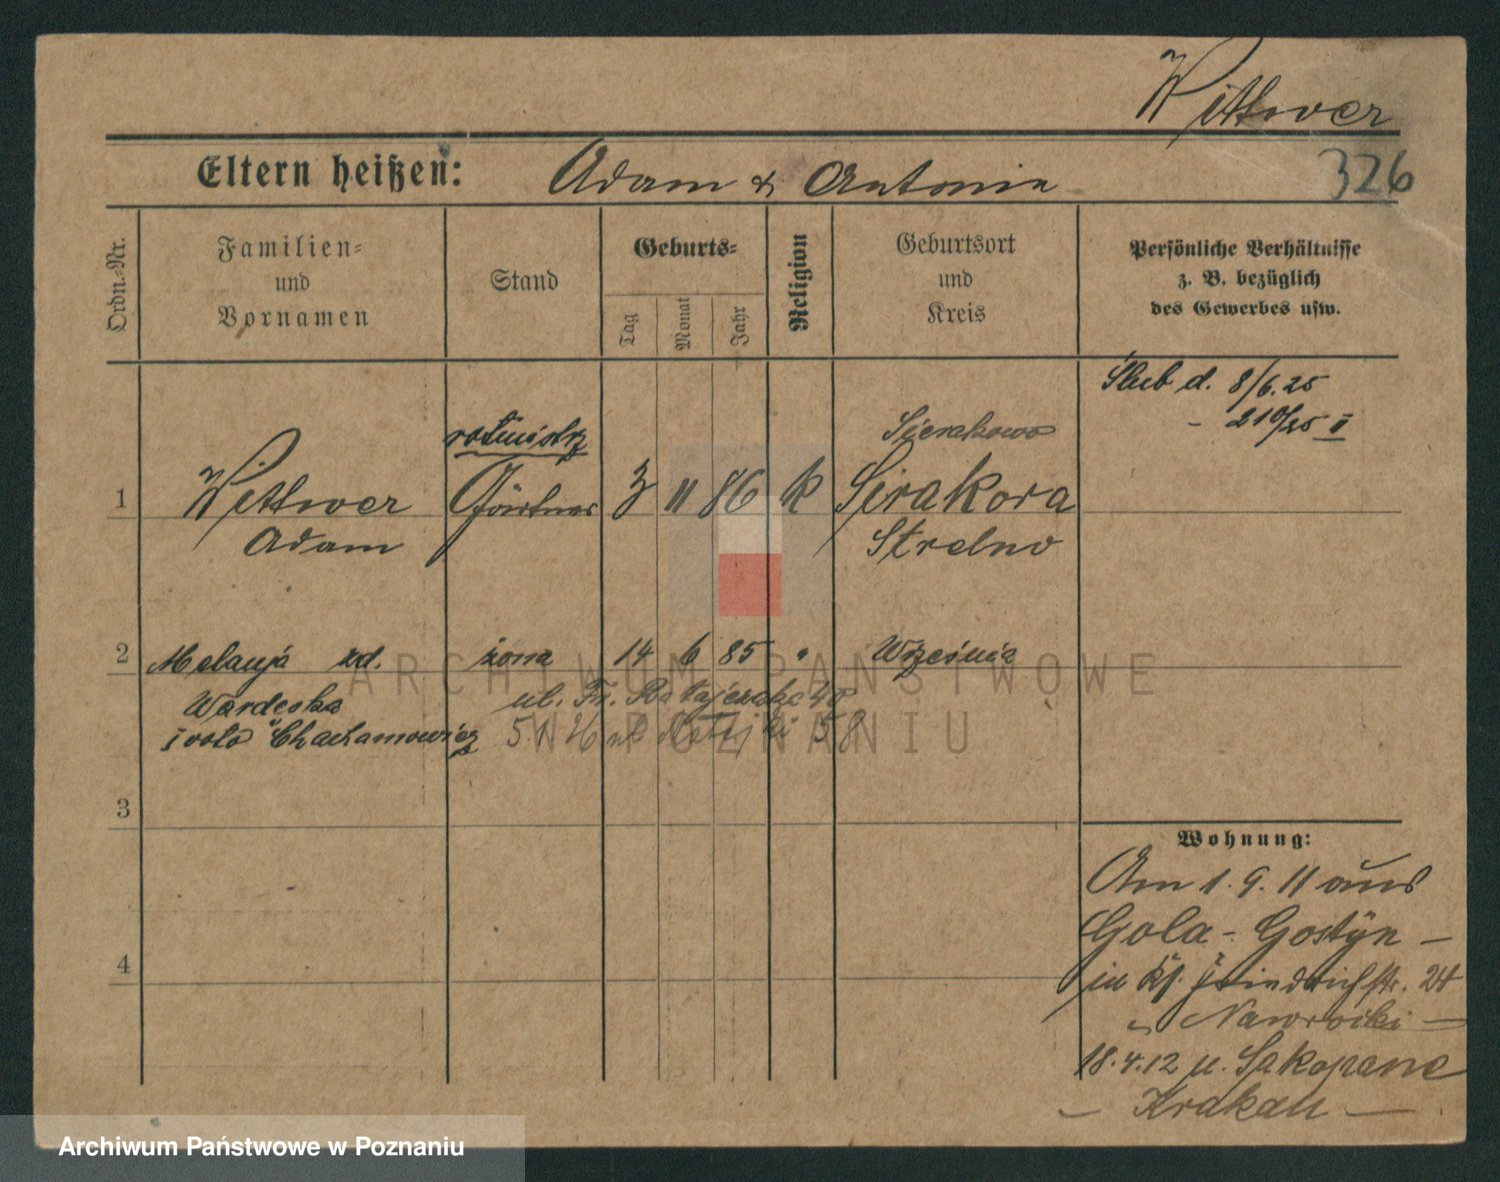 Wittwer
Eltern heißen: Adam & Antonie
326
Ordn.-Nr.
Familien- und Vornamen
Stand
Geburts-
Tag
Monat
Jahr
Religion
Geburtsort und Kreis
Persönliche Verhältnisse z. B. bezüglich des Gewerbes usw.
Ślub d. 8/6.25
rotmistrz
Sierakowo
1 Wittwer Gärtner 3 11 86 k Sirakora
Adam Strelno
2 Melanja zd. żona 14 6 85 " Września
Wardeska ul. Fr. Ratajczaka 40
i voto Chachamowicz
3
Wohnung:
Am 1. 9. 11 aus
Gola - Gostÿn -
4
in Friedrichstr. 24
Nawrocki -
18.4.12 n. Sakopane
- Krakau -
ARCHIWUM PAŃSTWOWE
W POZNANIU
Archiwum Państwowe w Poznaniu